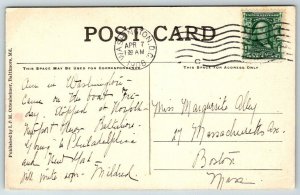 POST CARD
WASHINGTON, D.C.
APR 7
AM
1908
THIS SPACE MAY BE USED FOR CORRESPONDENCE.
THIS SPACE FOR ADDRESS ONLY.
Published by I. & M. Ottenheimer, Baltimore, Md.
Am in Washington
Came on the boat Fri-
day, stopped at Norfolk
Newport News Baltimore
Going to Philadelphia
and New York
will write soon - Mildred
Miss Marguerite Olley
27 Massachusetts Ave
Boston
Mass.